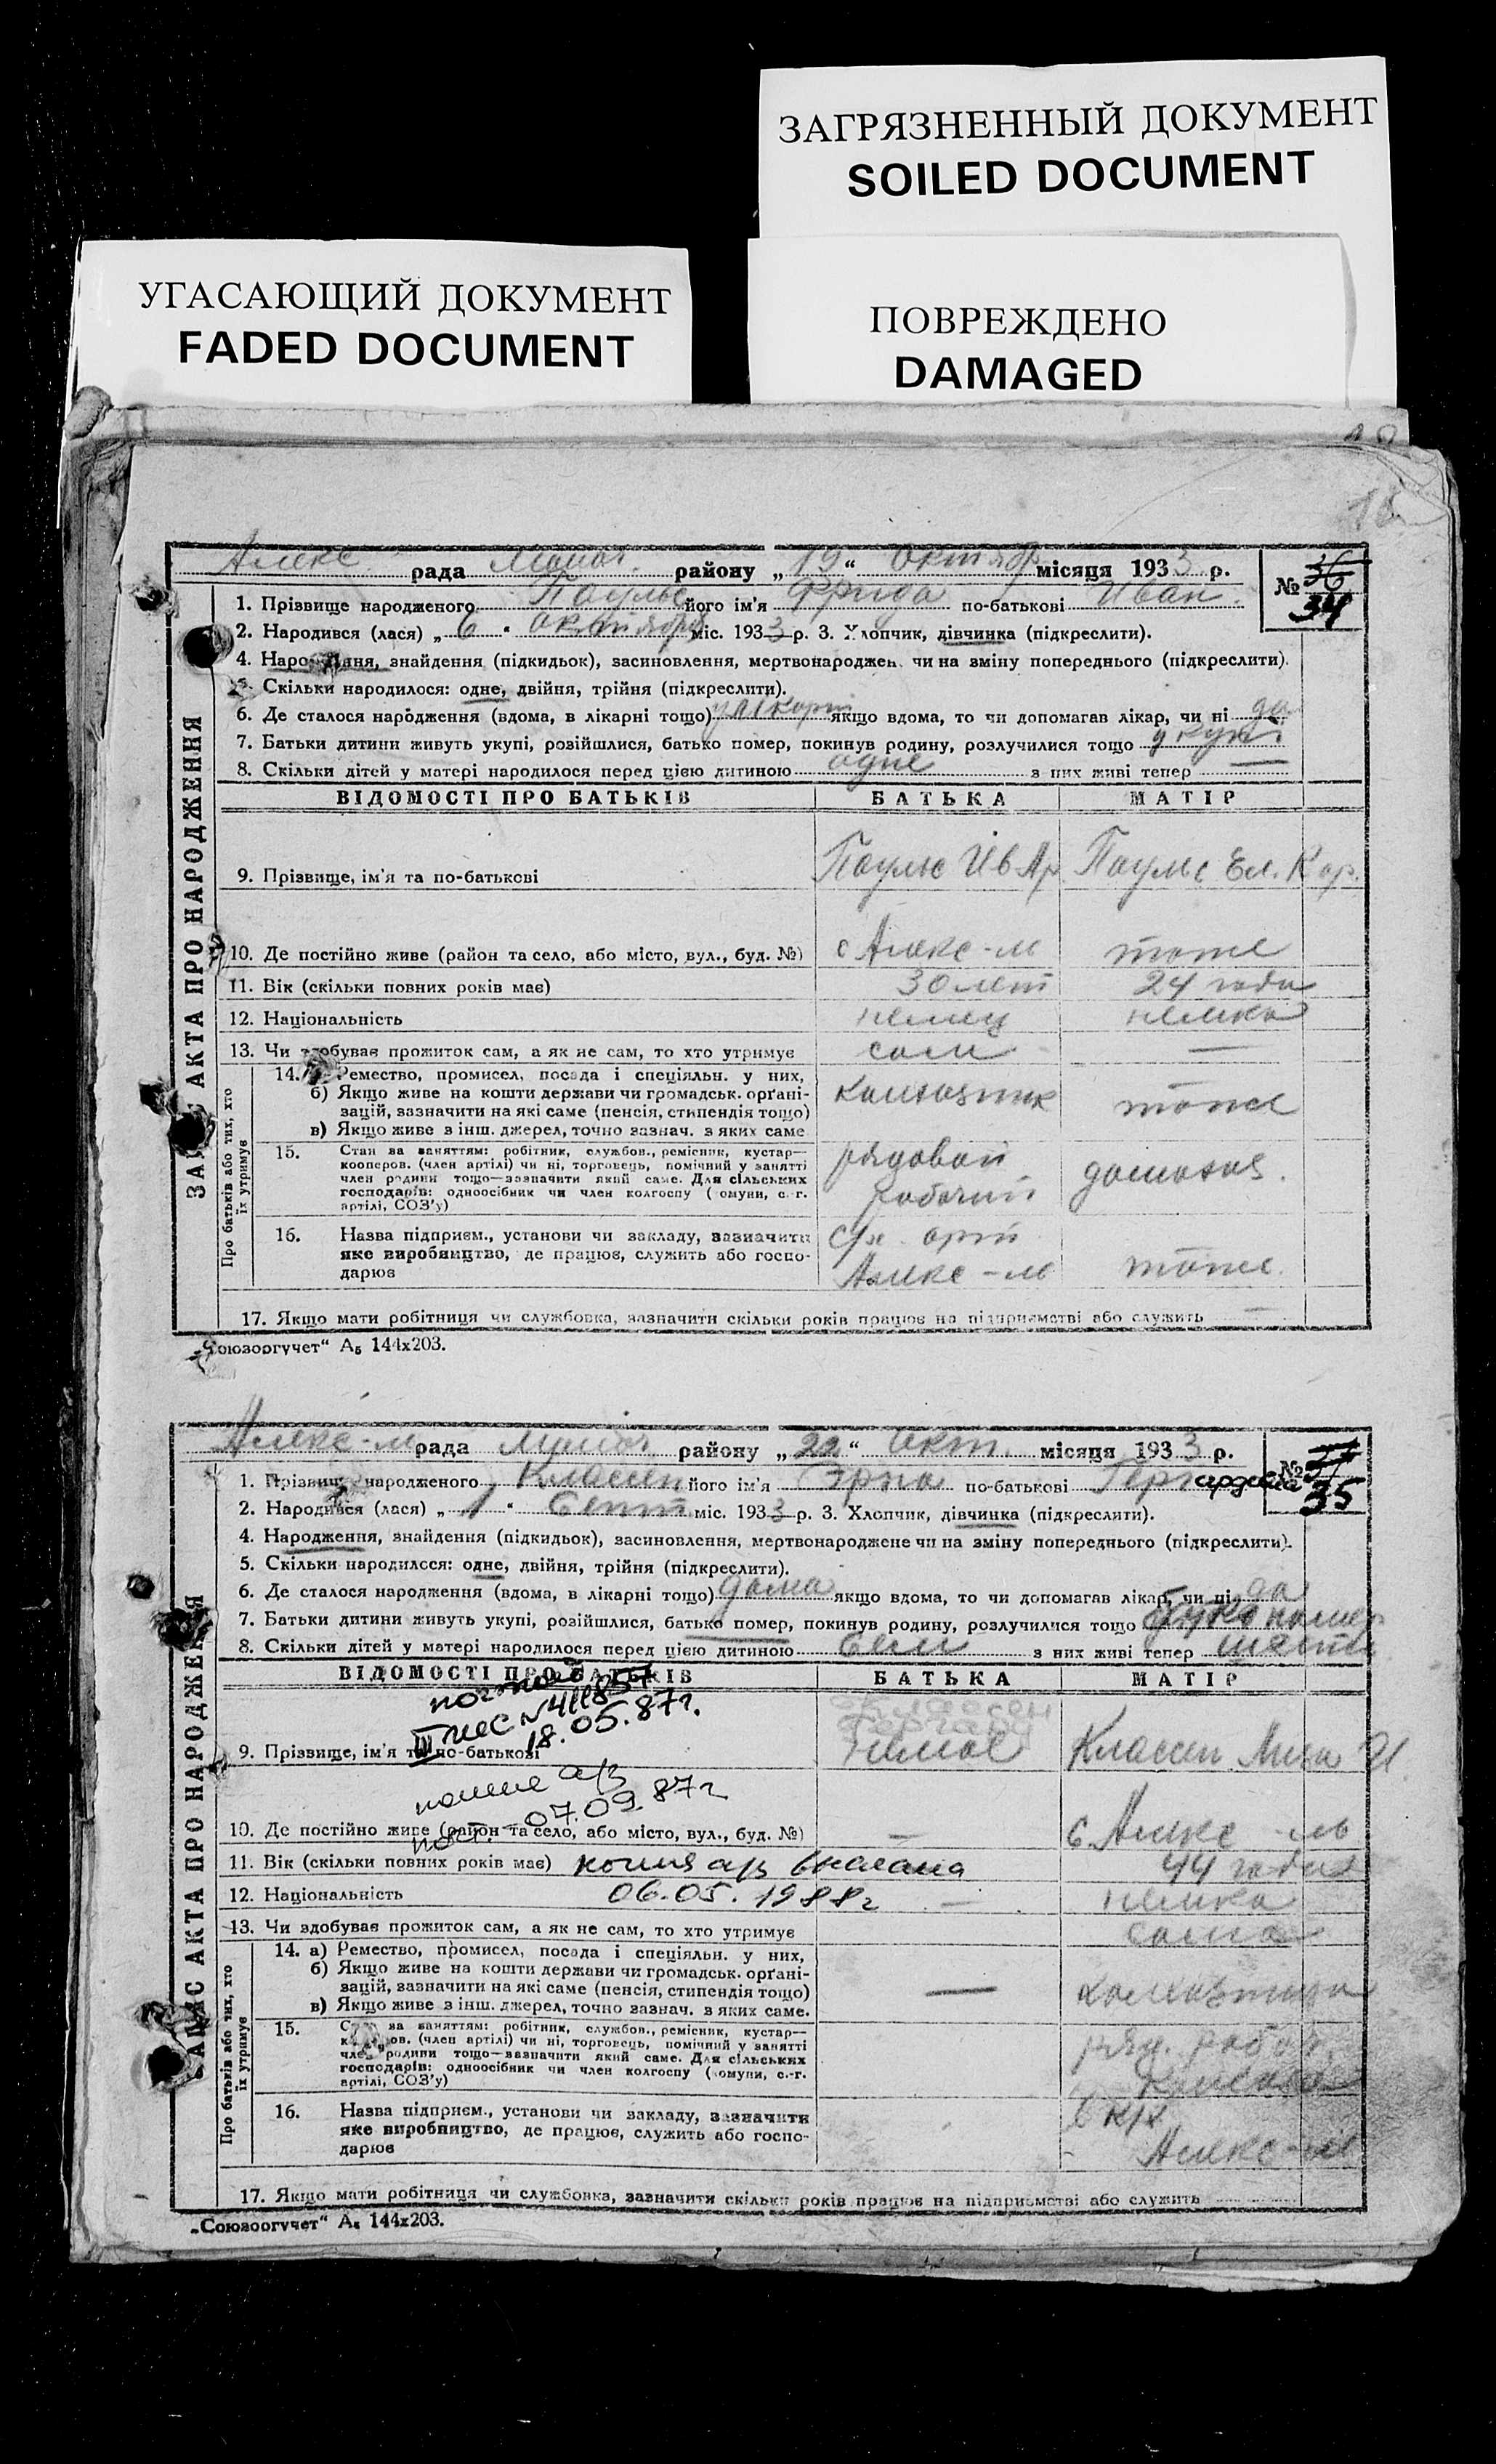 ЗАГРЯЗНЕННЫЙ ДОКУМЕНТ
SOILED DOCUMENT
УГАСАЮЩИЙ ДОКУМЕНТ
FADED DOCUMENT
ПОВРЕЖДЕНО
DAMAGED
18
Алекс рада району „19“ Октябр місяця 1933 р.
№ 36
34
1. Прізвище народженого Паульс його ім'я Фрида по-батькові Иван.
2. Народився (лася) „6“ октября міс. 1933 р. 3. Хлопчик, дівчинка (підкреслити).
4. Народження, знайдення (підкидьок), засиновлення, мертвонароджен чи на зміну попереднього (підкреслити).
5. Скільки народилося: одне, двійня, трійня (підкреслити).
6. Де сталося народження (вдома, в лікарні тощо) якщо вдома, то чи допомагав лікар, чи ні да
7. Батьки дитини живуть укупі, розійшлися, батько помер, покинув родину, розлучилися тощо укупі
8. Скільки дітей у матері народилося перед цією дитиною одне з них живі тепер —
ЗАПИС АКТА ПРО НАРОДЖЕННЯ
ВІДОМОСТІ ПРО БАТЬКІВ БАТЬКА МАТІР
9. Прізвище, ім'я та по-батькові Паульс Ив Ар. Паульс Ел. Кор.
10. Де постійно живе (район та село, або місто, вул., буд. №) с Алекс-м тоже
11. Вік (скільки повних років має) 30 лет 24 года
12. Національність немец немка
13. Чи здобуває прожиток сам, а як не сам, то хто утримує сам —
Про батьків або тих, хто їх утримує
14. а) Ремество, промисел, посада і спеціяльн. у них,
б) Якщо живе на кошти держави чи громадськ. орґані-
зацій, зазначити на які саме (пенсія, стипендія тощо)
в) Якщо живе з інш. джерел, точно зазнач. з яких саме
колхозник тоже
15. Стан за заняттям: робітник, службов., ремісник, кустар—
кооперов. (член артілі) чи ні, торговець, помічний у занятті
член родини тощо—зазначити який саме. Для сільських
господарів: одноосібник чи член колгоспу (комуни, с.-г.
артілі, СОЗ'у)
рядовой рабочий домохоз.
16. Назва підприєм., установи чи закладу, зазначити
яке виробництво, де працює, служить або госпо-
дарює
с/х. арт Алекс-м тоже.
17. Якщо мати робітниця чи службовка, зазначити скільки років працює на підприємстві або служить —
„Союзоргучет“ А₅ 144х203.
Алекс-м рада району „22“ Окт. місяця 1933 р.
№ 35
1. Прізвище народженого Классен його ім'я Эрна по-батькові Гергардовна
2. Народився (лася) „1“ Сент міс. 1933 р. 3. Хлопчик, дівчинка (підкреслити).
4. Народження, знайдення (підкидьок), засиновлення, мертвонароджене чи на зміну попереднього (підкреслити).
5. Скільки народилося: одне, двійня, трійня (підкреслити).
6. Де сталося народження (вдома, в лікарні тощо) дома якщо вдома, то чи допомагав лікар, чи ні да
7. Батьки дитини живуть укупі, розійшлися, батько помер, покинув родину, розлучилися тощо помер
8. Скільки дітей у матері народилося перед цією дитиною сем з них живі тепер шесть
ЗАПИС АКТА ПРО НАРОДЖЕННЯ
ВІДОМОСТІ ПРО БАТЬКІВ БАТЬКА МАТІР
18.05.87г.
9. Прізвище, ім'я та по-батькові Классен Гергард Классен
07.09.87г
10. Де постійно живе (район та село, або місто, вул., буд. №) — с. Алекс-м
11. Вік (скільки повних років має) копия а/з выслана 44 года
12. Національність 06.05.1988г — немка
13. Чи здобуває прожиток сам, а як не сам, то хто утримує сама
Про батьків або тих, хто їх утримує
14. а) Ремество, промисел, посада і спеціяльн. у них,
б) Якщо живе на кошти держави чи громадськ. орґані-
зацій, зазначити на які саме (пенсія, стипендія тощо)
в) Якщо живе з інш. джерел, точно зазнач. з яких саме.
— колхозница
15. Стан за заняттям: робітник, службов., ремісник, кустар—
кооперов. (член артілі) чи ні, торговець, помічний у занятті
член родини тощо—зазначити який саме. Для сільських
господарів: одноосібник чи член колгоспу (комуни, с.-г.
артілі, СОЗ'у)
ряд. работ.
16. Назва підприєм., установи чи закладу, зазначити
яке виробництво, де працює, служить або госпо-
дарює
в к/х Алекс-м
17. Якщо мати робітниця чи службовка, зазначити скільки років працює на підприємстві або служить
„Союзоргучет“ А₅ 144х203.